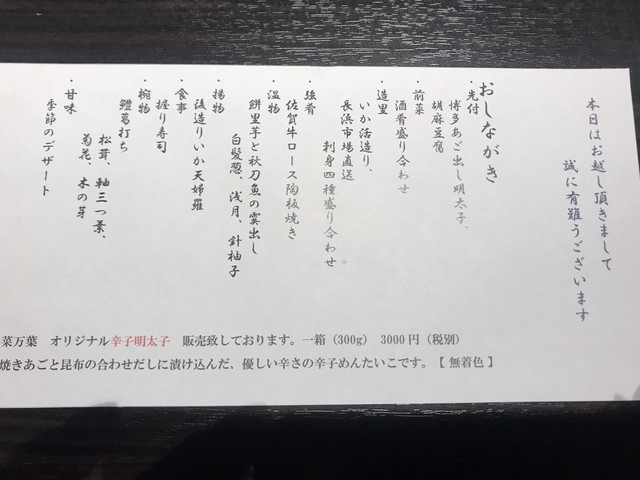 本日はお越し頂きまして
誠に有難うございます
おしながき
・先付
博多あご出し明太子、
胡麻豆腐
・前菜
酒肴盛り合わせ
・造里
いか活造り、
長浜市場直送
刺身四種盛り合わせ
・強肴
佐賀牛ロース陶板焼き
・温物
餅里芋と秋刀魚の霙出し
白髪葱、浅月、針柚子
・揚物
後造りいか天婦羅
・食事
握り寿司
・椀物
鱧葛打ち
松茸、軸三つ葉、
菊花、木の芽
・甘味
季節のデザート
菜万葉 オリジナル辛子明太子 販売致しております。一箱（300g） 3000円（税別）
焼きあごと昆布の合わせだしに漬け込んだ、優しい辛さの辛子めんたいこです。【 無着色 】